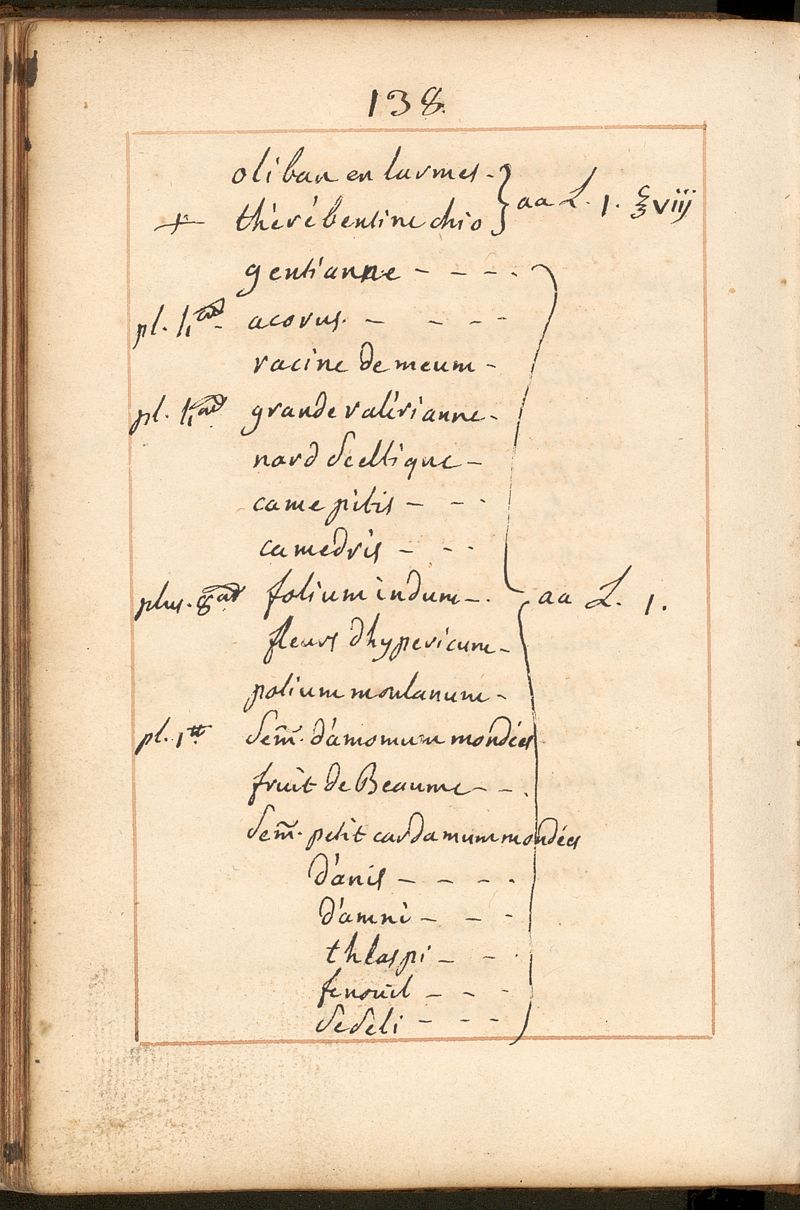 138.
oliban en larmes - } aa L. 1. ℥viij
+ thérébentine chio
gentianne - - - -
pl. acorus. - - - -
racine de meum -
pl. grande valérianne -
nard seltique -
camepitis - - -
camedris - - -
folium indum -. aa L. 1.
plus.
fleurs dhypericum -
polium montanum -
pl. 1tt sem̃. d'amomum mondées
fruit de Beaume - - .
sem̃. petit cardamum mondées
d'anis - - - -
d'ammi - - -
thlaspi - - -
fenouil - - -
seseli - - -